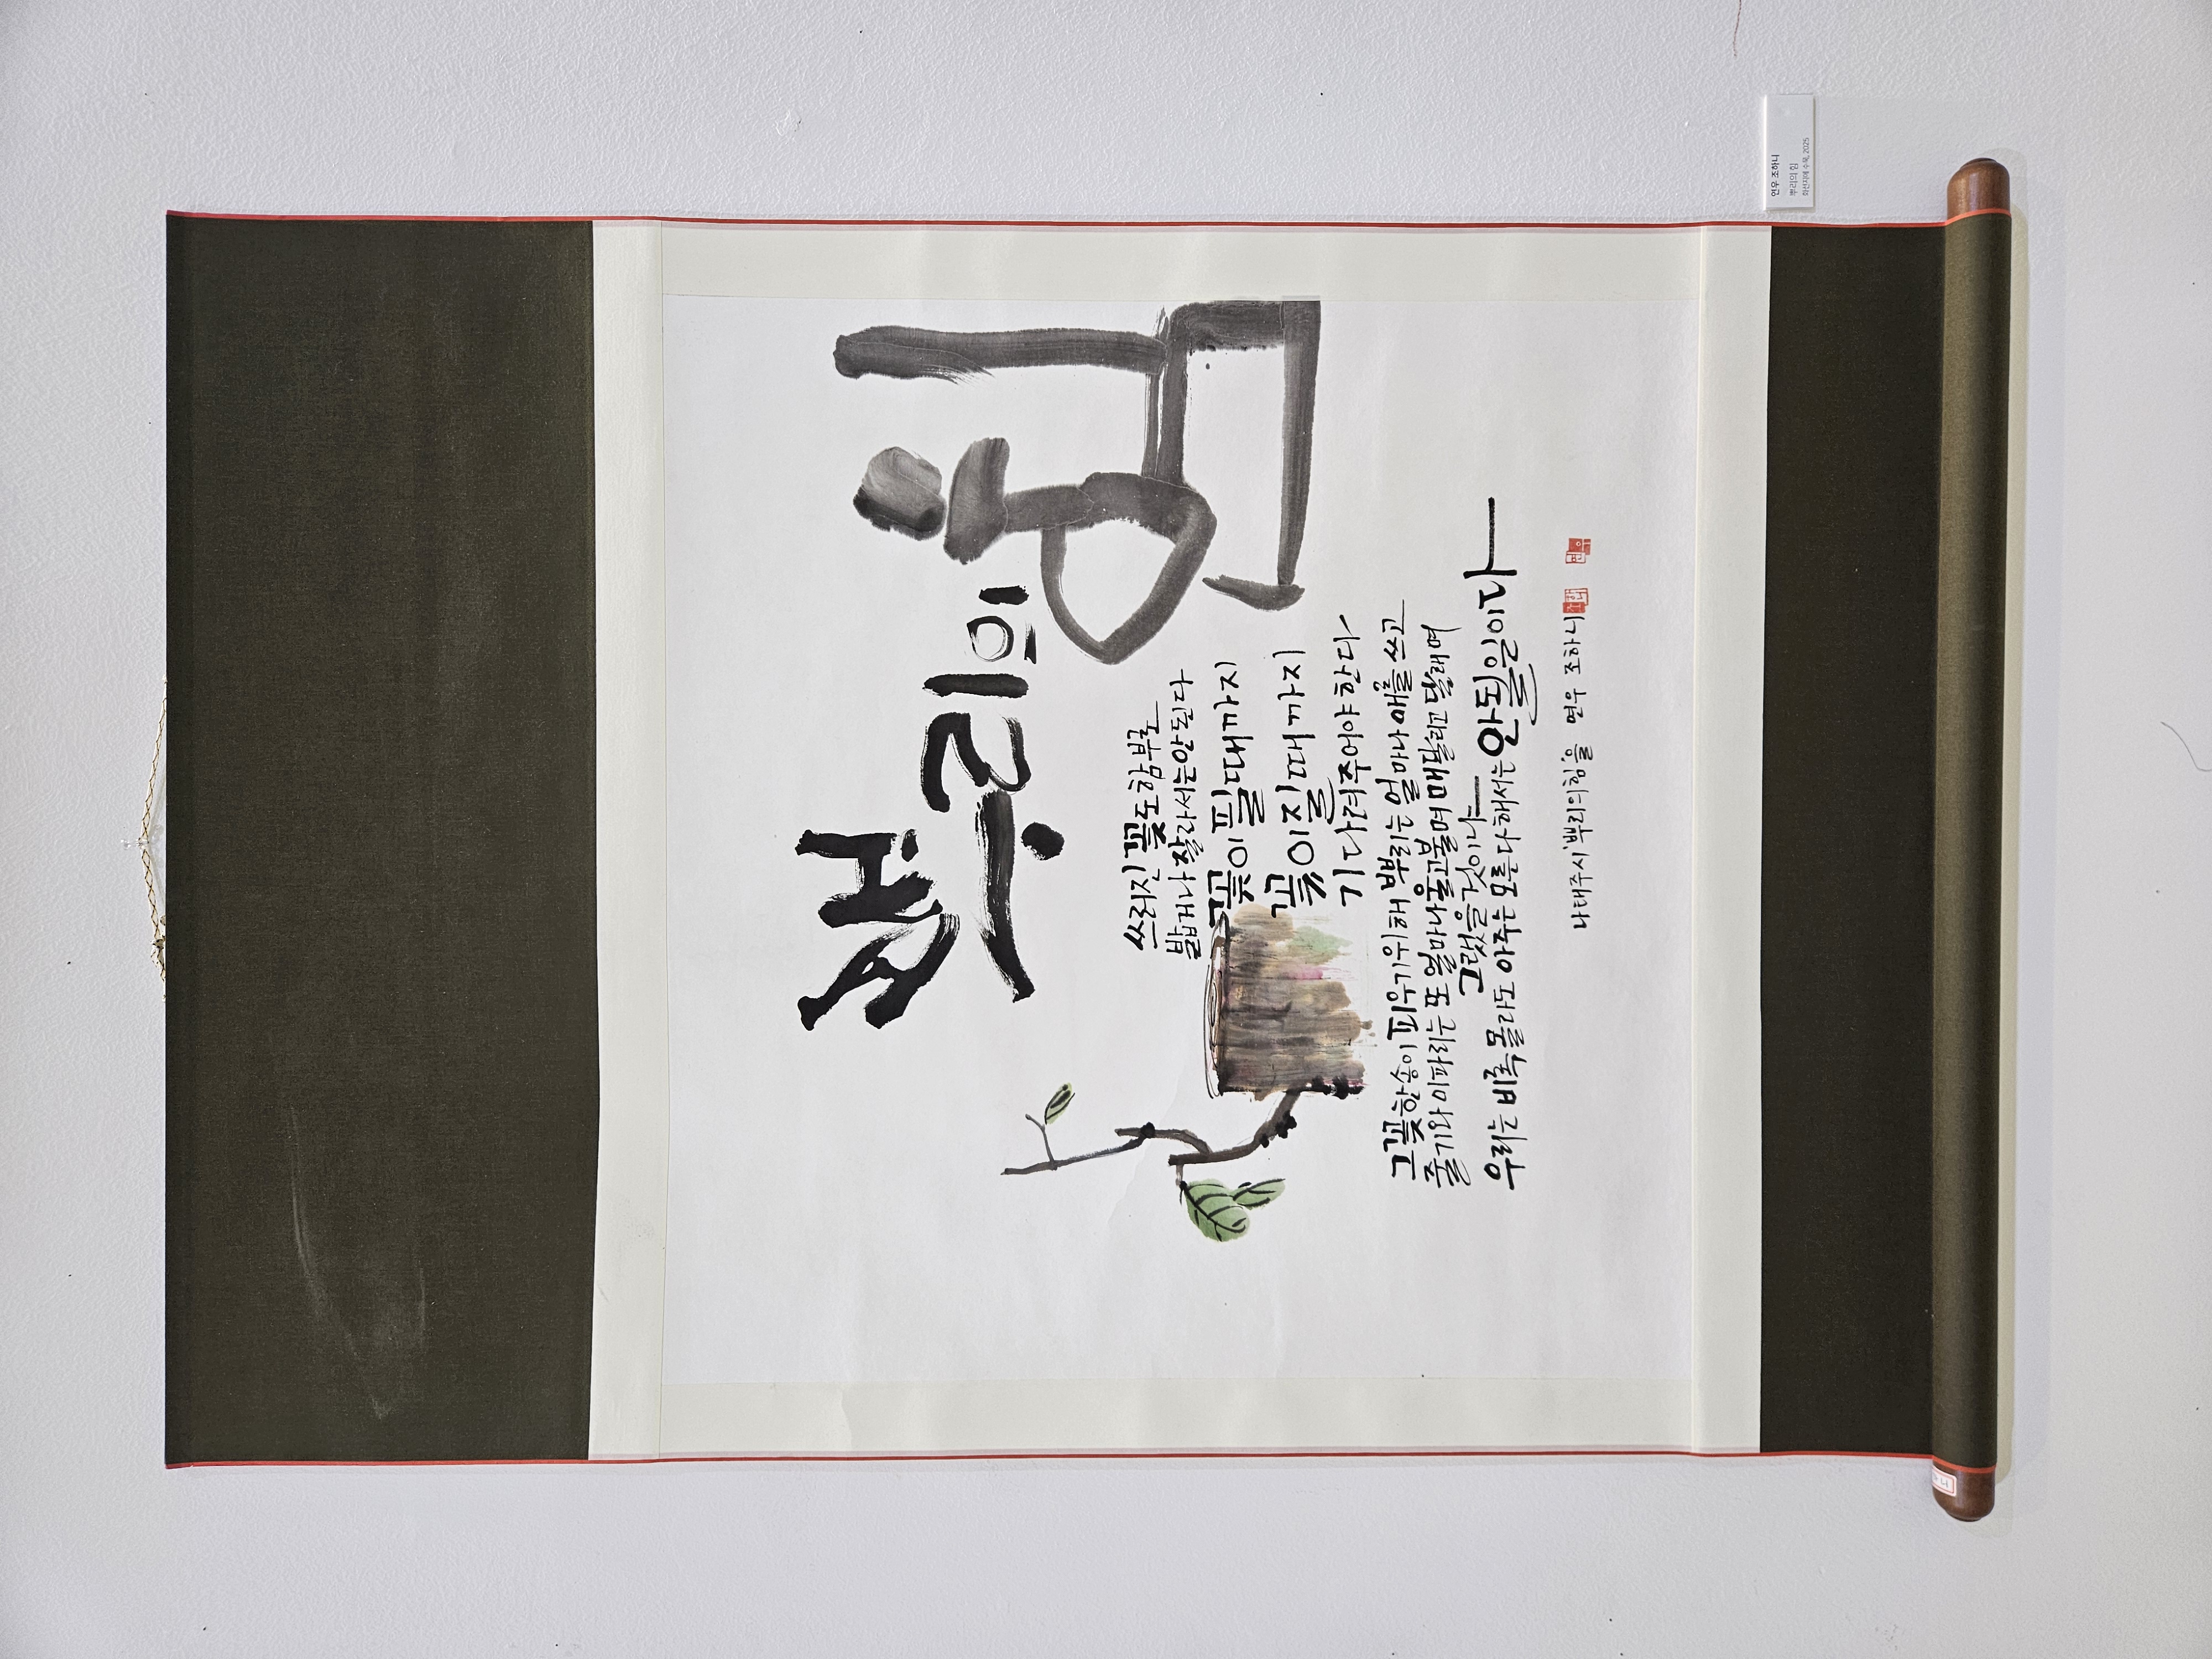 뿌리의
힘
쓰러진 꽃도 함부로
밟거나 잘라서는 안된다
꽃이 필 때까지
꽃이 질 때까지
기다려주어야 한다
그 꽃 한 송이 피우기 위해 뿌리는 얼마나 애를 쓰고
줄기와 이파리는 또 얼마나 울고불며 매달리고 달래며
그랬을 것이냐
우리는 비록 몰라도 아주는 모른다 해서는 안될 일이다
나태주 시 '뿌리의 힘'을 연우 조하니
연우 조하니
뿌리의 힘
화선지에 수묵, 2025